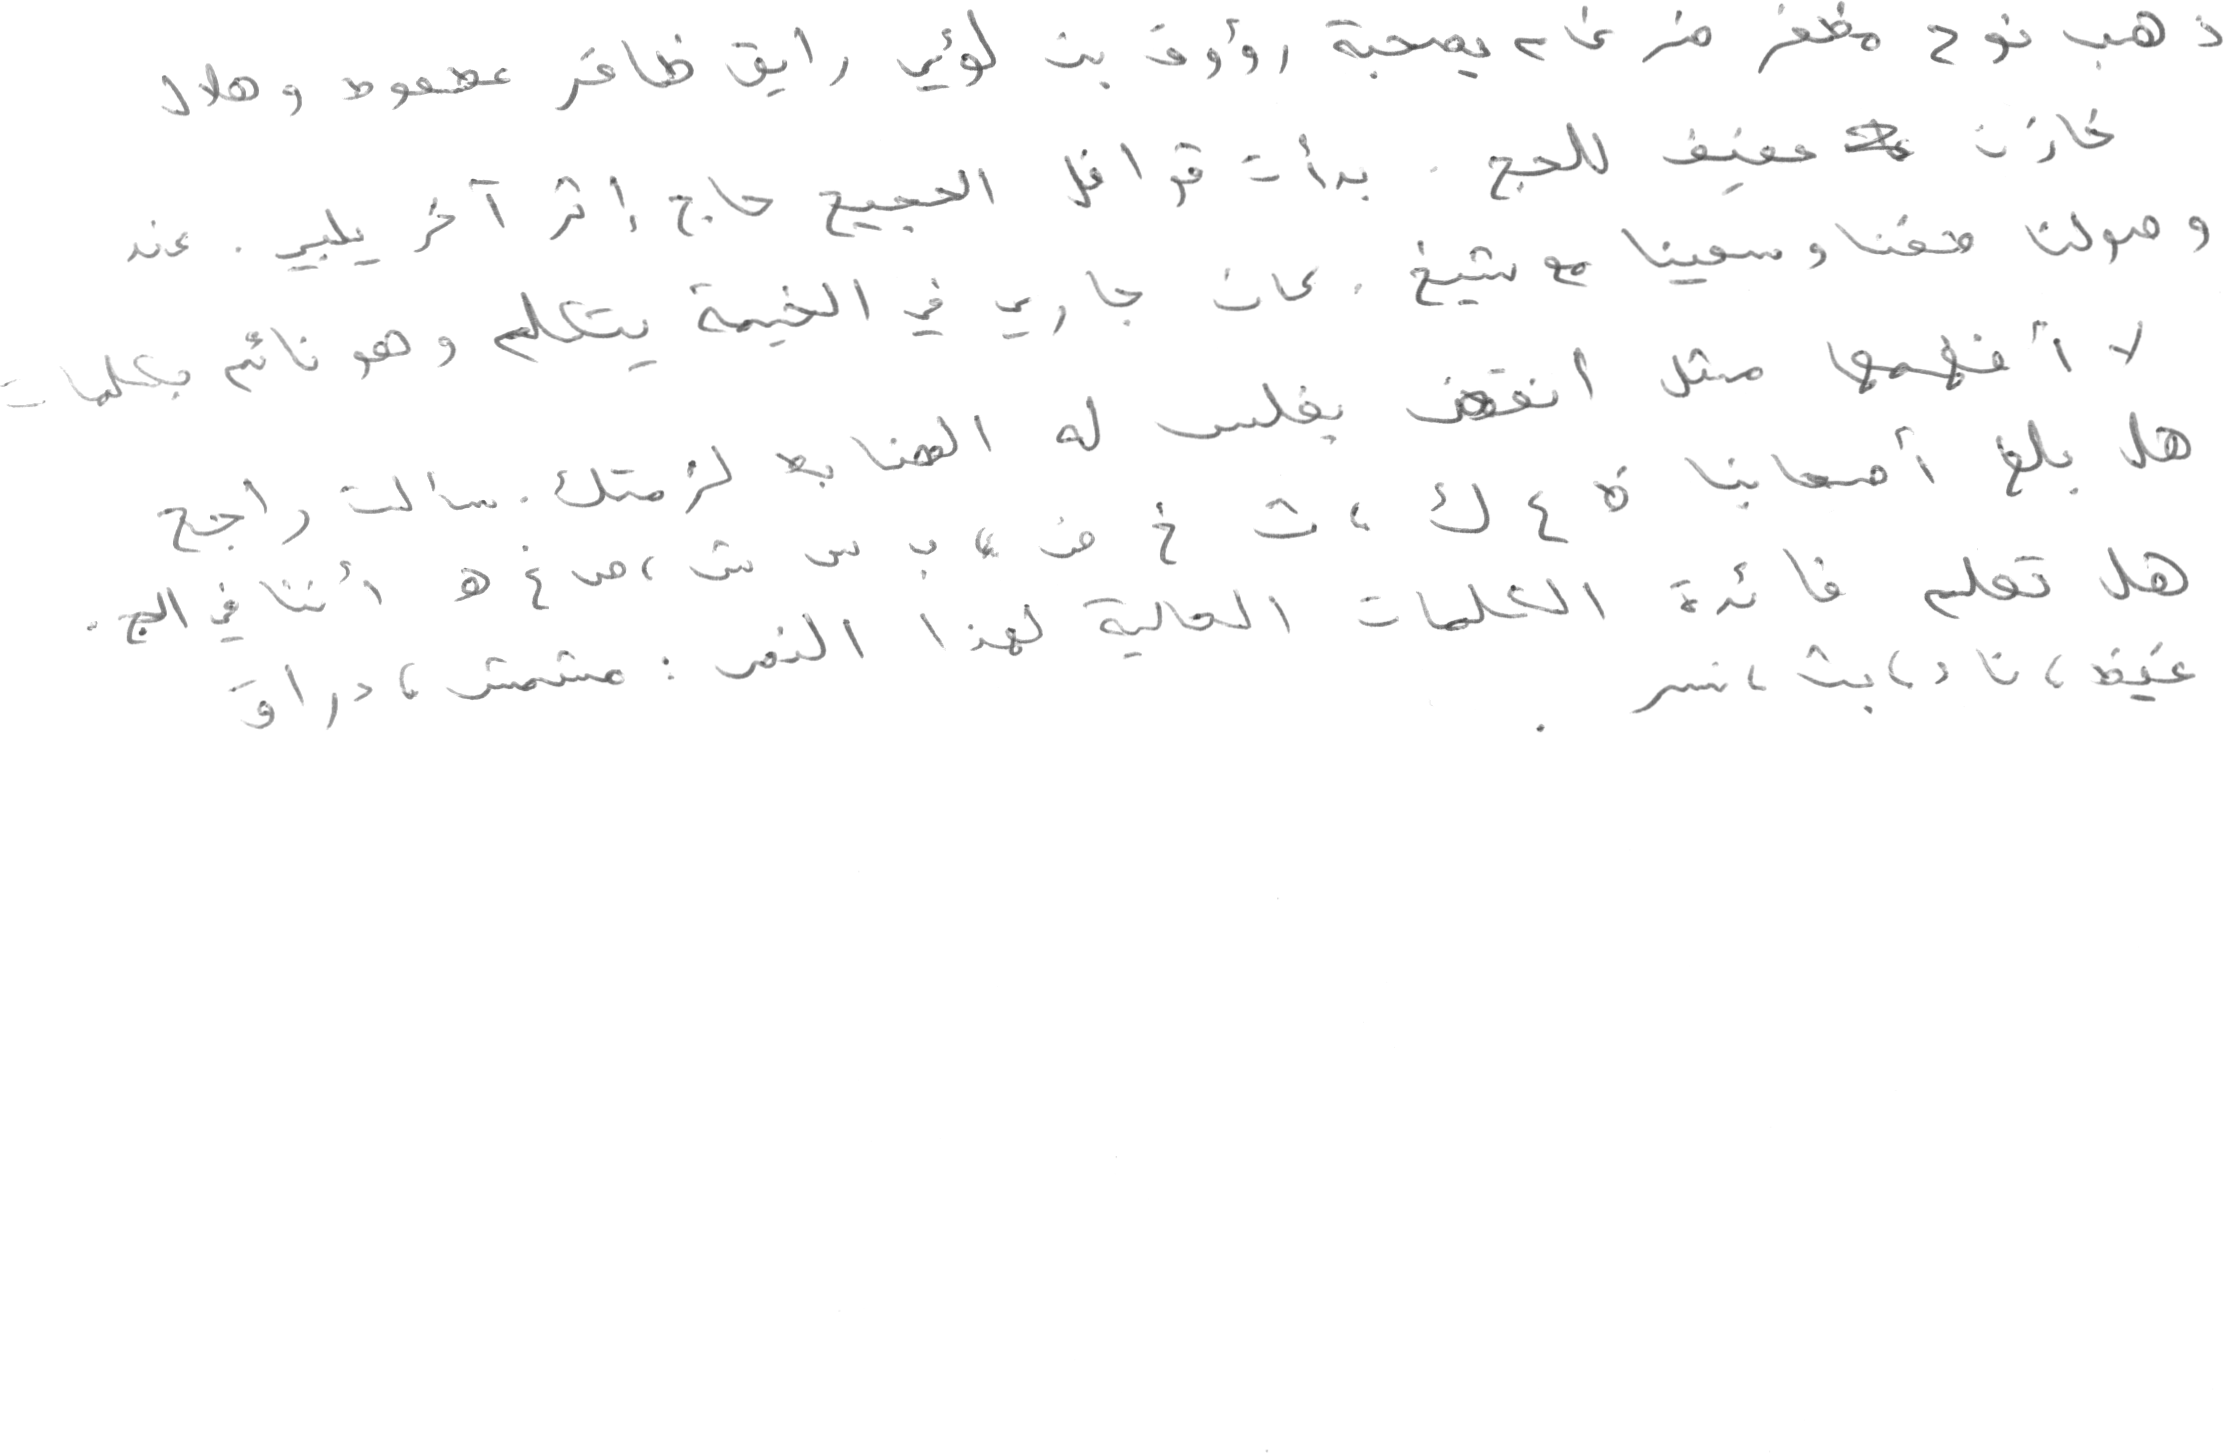 ذهب نوح مظفر ضرغام بصحبة رؤوف بن لؤي رايق ظافر عضعوط وهلال
خازن عفيف للحج . بدأت قوافل الحجيج حاج إثر آخر يلبي . عند
وصولنا طفنا وسعينا مع شيخ . كان جاري في الخيمة يتكلم وهو نائم بكلمات
لا أفهمها مثل انفقضت يغلس له الضابط لزمتك . سألت راجح
هل بلغ أصحابنا ة ع ك ، ث خ ض ، ب س ش ، ص غ ه أننا في الحج .
هل تعلم فائدة الكلمات التالية لهذا النص : مشمش ، دراق
غيظ ، ناد ، بث ، نسر .